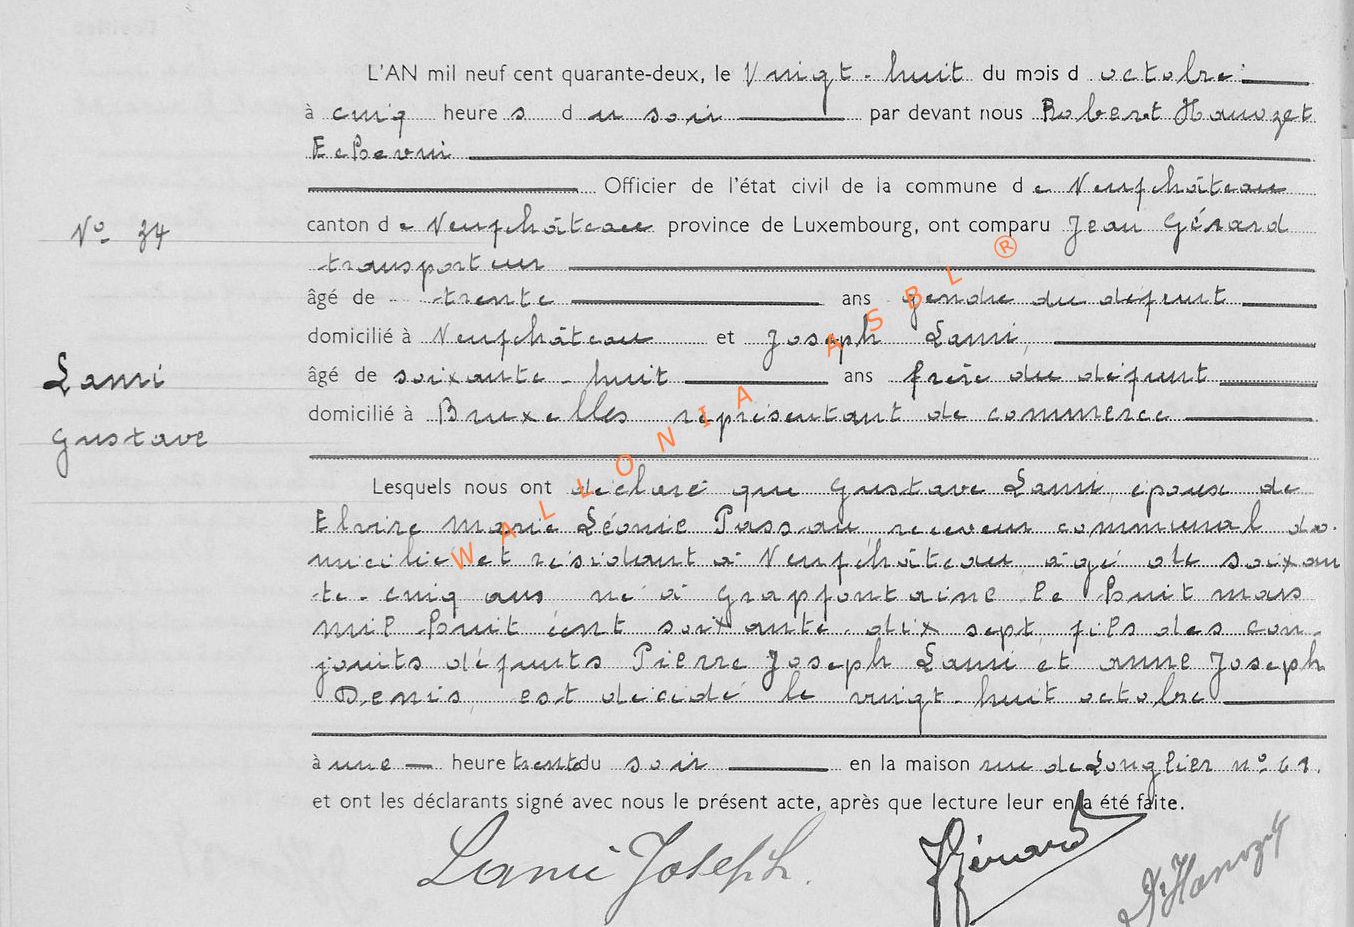 L'AN mil neuf cent quarante-deux, le vingt-huit du mois d octobre
à cinq heure s d u soir par devant nous Robert Hanozet
Echevin
Officier de l'état civil de la commune d e Neufchâteau
N° 34
canton d e Neufchâteau province de Luxembourg, ont comparu Jean Gérard
transporteur
âgé de trente ans gendre du défunt
domicilié à Neufchâteau et Joseph Lami,
Lami
âgé de soixante-huit ans frère du défunt
domicilié à Bruxelles représentant de commerce
Gustave
Lesquels nous ont déclaré que Gustave Lami, époux de
Elvire Marie Léonie Passau receveur communal do-
micilié et résidant à Neufchâteau, âgé de soixan
te-cinq ans, né à Grapfontaine le huit mars
mil huit cent soixante-dix sept, fils des con-
joints défunts Pierre Joseph Lami et Anne Joseph
Denis, est décédé le vingt-huit octobre
à une heure trente du soir en la maison rue de Longlier n° 61.
et ont les déclarants signé avec nous le présent acte, après que lecture leur en a été faite.
Lami Joseph. JGérard Hanozet
WALLONIA ASBL ®